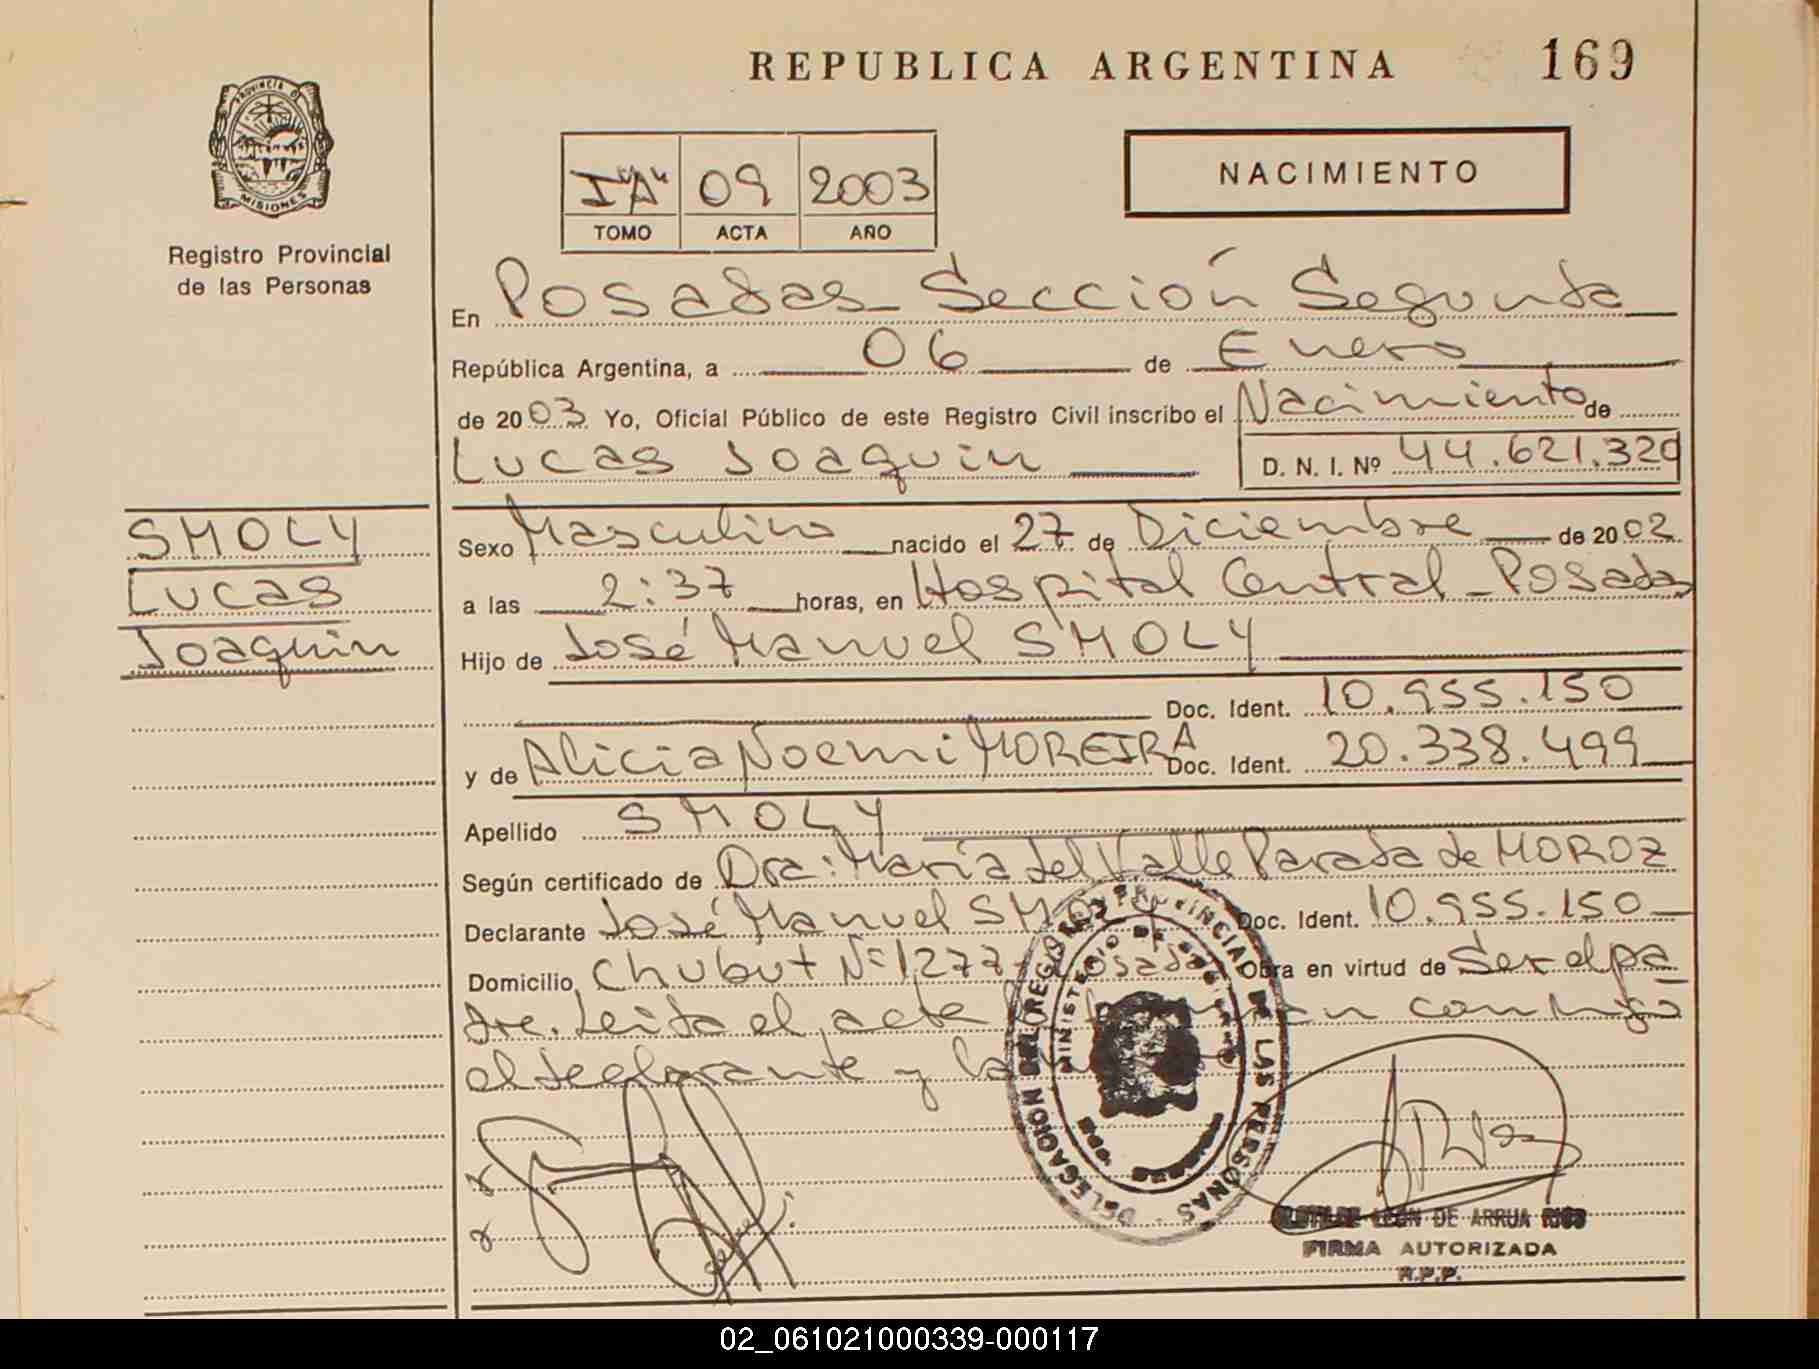 REPUBLICA ARGENTINA 169
PROVINCIA DE
MISIONES
Registro Provincial
de las Personas
I "A" 09 2003
TOMO ACTA AÑO
NACIMIENTO
En Posadas - Sección Segunda
República Argentina, a 06 de Enero
de 2003 Yo, Oficial Público de este Registro Civil inscribo el Nacimiento de
Lucas Joaquin D. N. I. Nº 44.621.329
SMOLY
Lucas
Joaquin
Sexo Masculino nacido el 27 de Diciembre de 2002
a las 2:37 horas, en Hospital Central - Posadas
Hijo de José Manuel SMOLY
Doc. Ident. 10.955.150
y de Alicia Noemi MOREIRA Doc. Ident. 20.338.499
Apellido SMOLY
Según certificado de Dra: María del Valle Parada de MOROZ
Declarante José Manuel SMOLY Doc. Ident. 10.955.150
Domicilio Chubut Nº 1277 - Posadas Obra en virtud de Ser el pa
dre. Leida el acta la firman conmigo
el declarante y la
DELEGACION DEL REGISTRO PROVINCIAL DE LAS PERSONAS
MINISTERIO DE
LEON DE ARRUA RIOS
FIRMA AUTORIZADA
R.P.P.
02_061021000339-000117